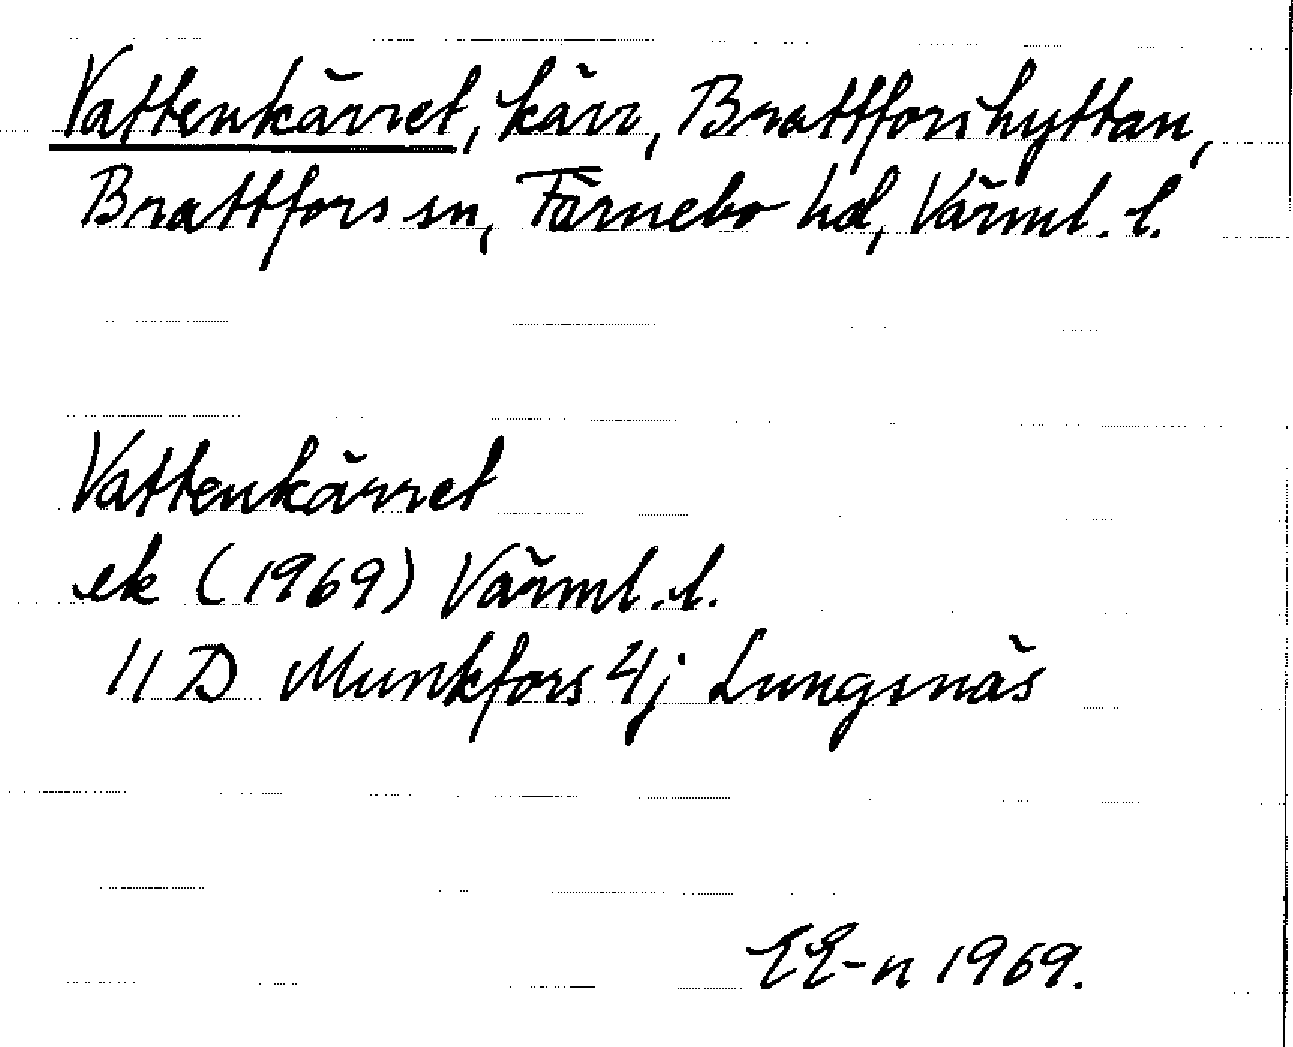 Vattenkärret, kärr, Brattforshyttan,
Brattfors sn, Färnebo hd, Värml. l.
Vattenkärret
ek (1969) Värml. l.
11 D Munkfors 4j Lungsnäs
EE-n 1969.